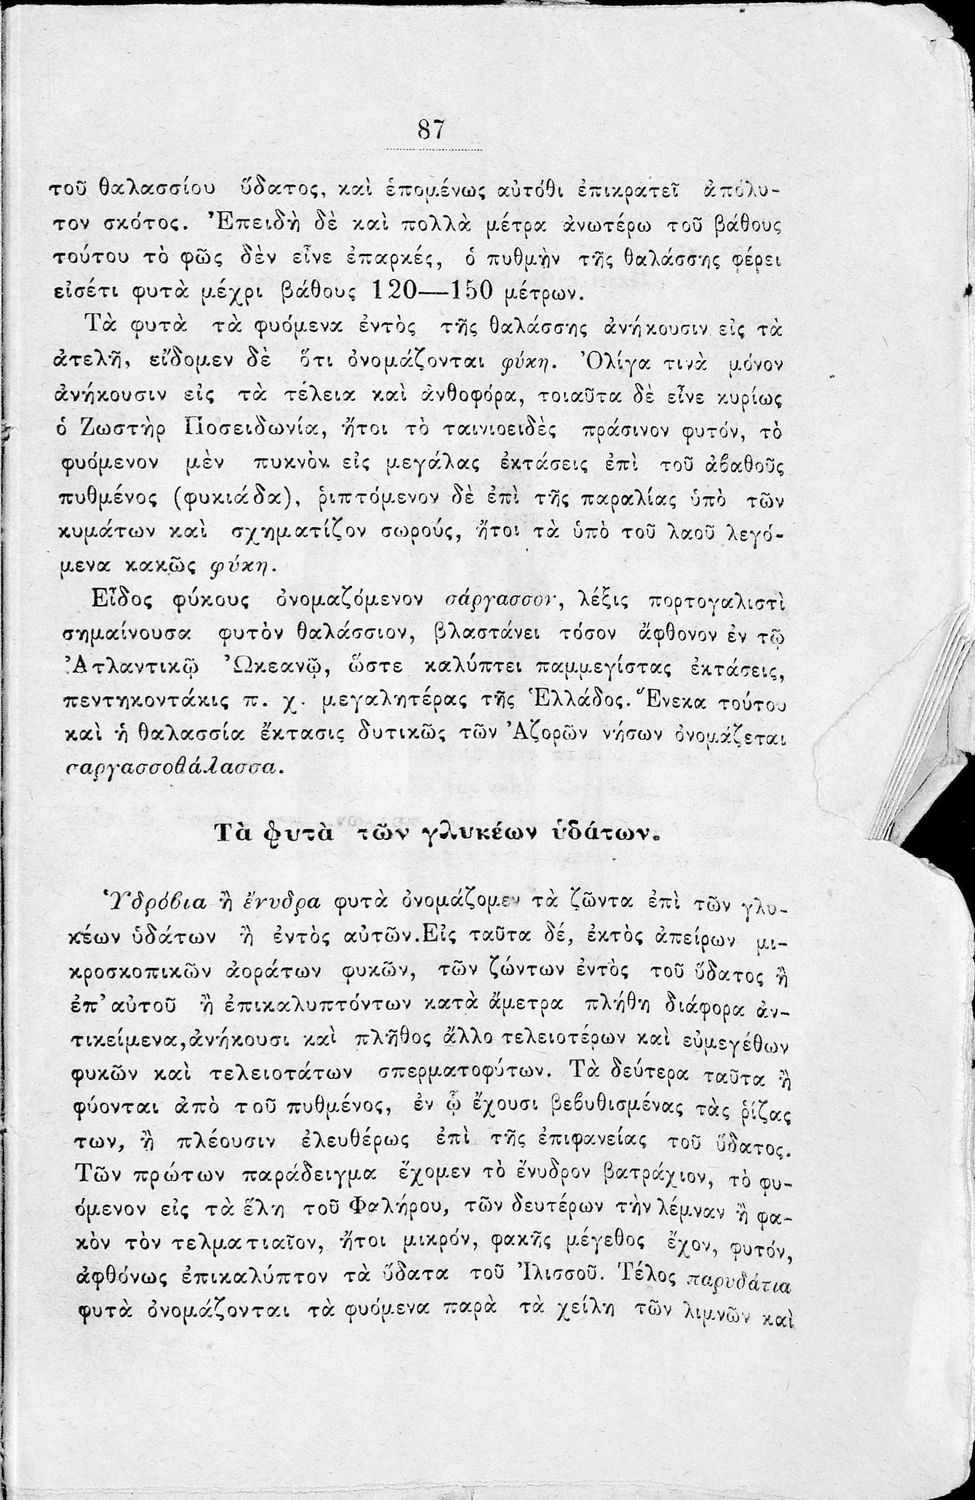 87
τοῦ θαλασσίου ὕδατος, καὶ ἑπομένως αὐτόθι ἐπικρατεῖ ἀπόλυ-
τον σκότος. Ἐπειδὴ δὲ καὶ πολλὰ μέτρα ἀνωτέρω τοῦ βάθους
τούτου τὸ φῶς δὲν εἶνε ἐπαρκές, ὁ πυθμὴν τῆς θαλάσσης φέρει
εἰσέτι φυτὰ μέχρι βάθους 120—150 μέτρων.
Τὰ φυτὰ τὰ φυόμενα ἐντὸς τῆς θαλάσσης ἀνήκουσιν εἰς τὰ
ἀτελῆ, εἴδομεν δὲ ὅτι ὀνομάζονται φύκη. Ὀλίγα τινὰ μόνον
ἀνήκουσιν εἰς τὰ τέλεια καὶ ἀνθοφόρα, τοιαῦτα δὲ εἶνε κυρίως
ὁ Ζωστὴρ Ποσειδωνία, ἤτοι τὸ ταινιοειδὲς πράσινον φυτόν, τὸ
φυόμενον μὲν πυκνὸν εἰς μεγάλας ἐκτάσεις ἐπὶ τοῦ ἀβαθοῦς
πυθμένος (φυκιάδα), ῥιπτόμενον δὲ ἐπὶ τῆς παραλίας ὑπὸ τῶν
κυμάτων καὶ σχηματίζον σωρούς, ἤτοι τὰ ὑπὸ τοῦ λαοῦ λεγό-
μενα κακῶς φύκη.
Εἶδος φύκους ὀνομαζόμενον σάργασσον, λέξις πορτογαλιστὶ
σημαίνουσα φυτὸν θαλάσσιον, βλαστάνει τόσον ἄφθονον ἐν τῷ
Ἀτλαντικῷ Ὠκεανῷ, ὥστε καλύπτει παμμεγίστας ἐκτάσεις,
πεντηκοντάκις π. χ. μεγαλητέρας τῆς Ἑλλάδος. Ἕνεκα τούτου
καὶ ἡ θαλασσία ἔκτασις δυτικῶς τῶν Ἀζορῶν νήσων ὀνομάζεται
σαργασσοθάλασσα.
Τὰ φυτὰ τῶν γλυκέων ὑδάτων.
Ὑδρόβια ἢ ἔνυδρα φυτὰ ὀνομάζομεν τὰ ζῶντα ἐπὶ τῶν γλυ-
κέων ὑδάτων ἢ ἐντὸς αὐτῶν. Εἰς ταῦτα δέ, ἐκτὸς ἀπείρων μι-
κροσκοπικῶν ἀοράτων φυκῶν, τῶν ζώντων ἐντὸς τοῦ ὕδατος ἢ
ἐπ' αὐτοῦ ἢ ἐπικαλυπτόντων κατὰ ἄμετρα πλήθη διάφορα ἀν-
τικείμενα, ἀνήκουσι καὶ πλῆθος ἄλλο τελειοτέρων καὶ εὐμεγέθων
φυκῶν καὶ τελειοτάτων σπερματοφύτων. Τὰ δεύτερα ταῦτα ἢ
φύονται ἀπὸ τοῦ πυθμένος, ἐν ᾧ ἔχουσι βεβυθισμένας τὰς ῥίζας
των, ἢ πλέουσιν ἐλευθέρως ἐπὶ τῆς ἐπιφανείας τοῦ ὕδατος.
Τῶν πρώτων παράδειγμα ἔχομεν τὸ ἔνυδρον βατράχιον, τὸ φυ-
όμενον εἰς τὰ ἕλη τοῦ Φαλήρου, τῶν δευτέρων τὴν λέμναν ἢ φα-
κὸν τὸν τελματιαῖον, ἤτοι μικρόν, φακῆς μέγεθος ἔχον, φυτόν,
ἀφθόνως ἐπικαλύπτον τὰ ὕδατα τοῦ Ἰλισσοῦ. Τέλος παρυδάτια
φυτὰ ὀνομάζονται τὰ φυόμενα παρὰ τὰ χείλη τῶν λιμνῶν καὶ